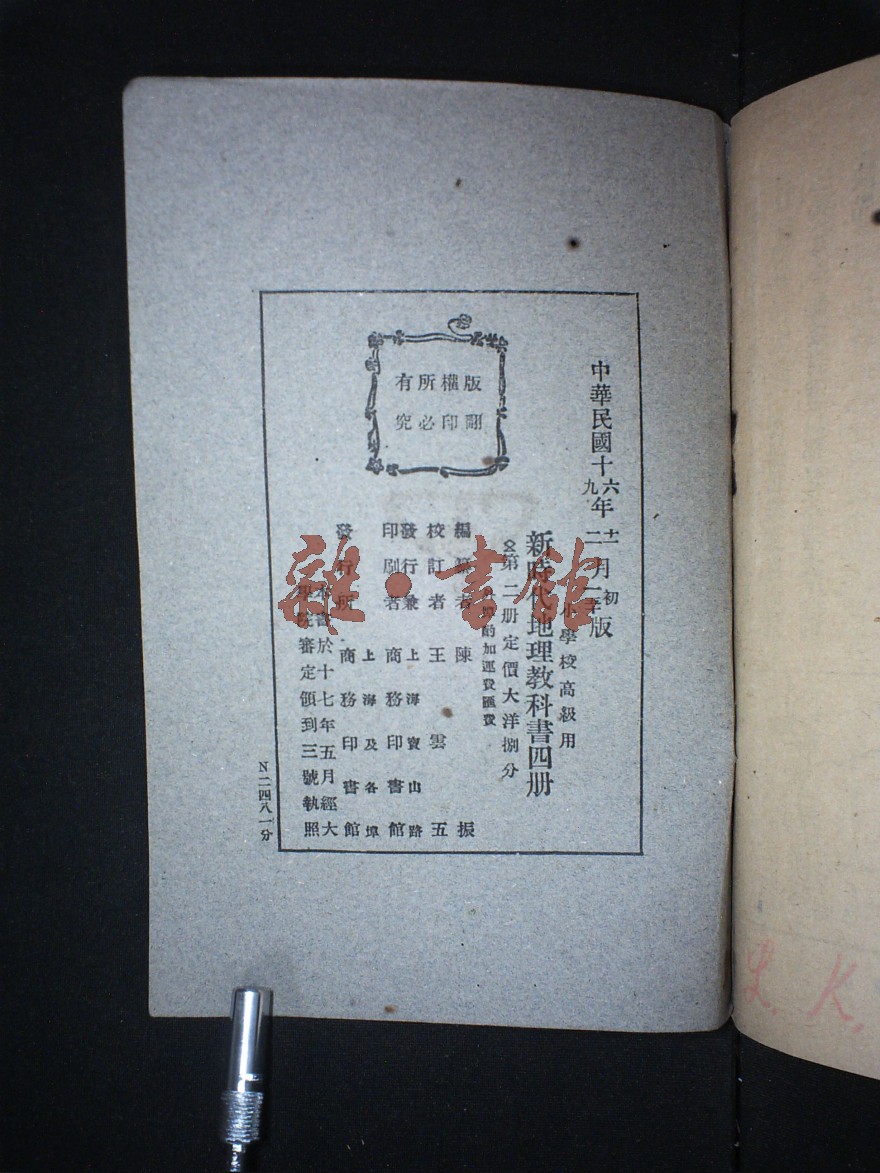 版權所有
翻印必究
中華民國十六年十二月初版
九年二月一
小學校高級用
新時代地理教科書四册
第二册定價大洋捌分
酌加運費匯費
編纂者 陳振
校訂者 王雲五
發行兼印刷者 上海寶山路 商務印書館
發行所 上海及各埠 商務印書館
本書於十七年五月經大
學院審定領到三號執照
N二四八一分
雜·書館
K.